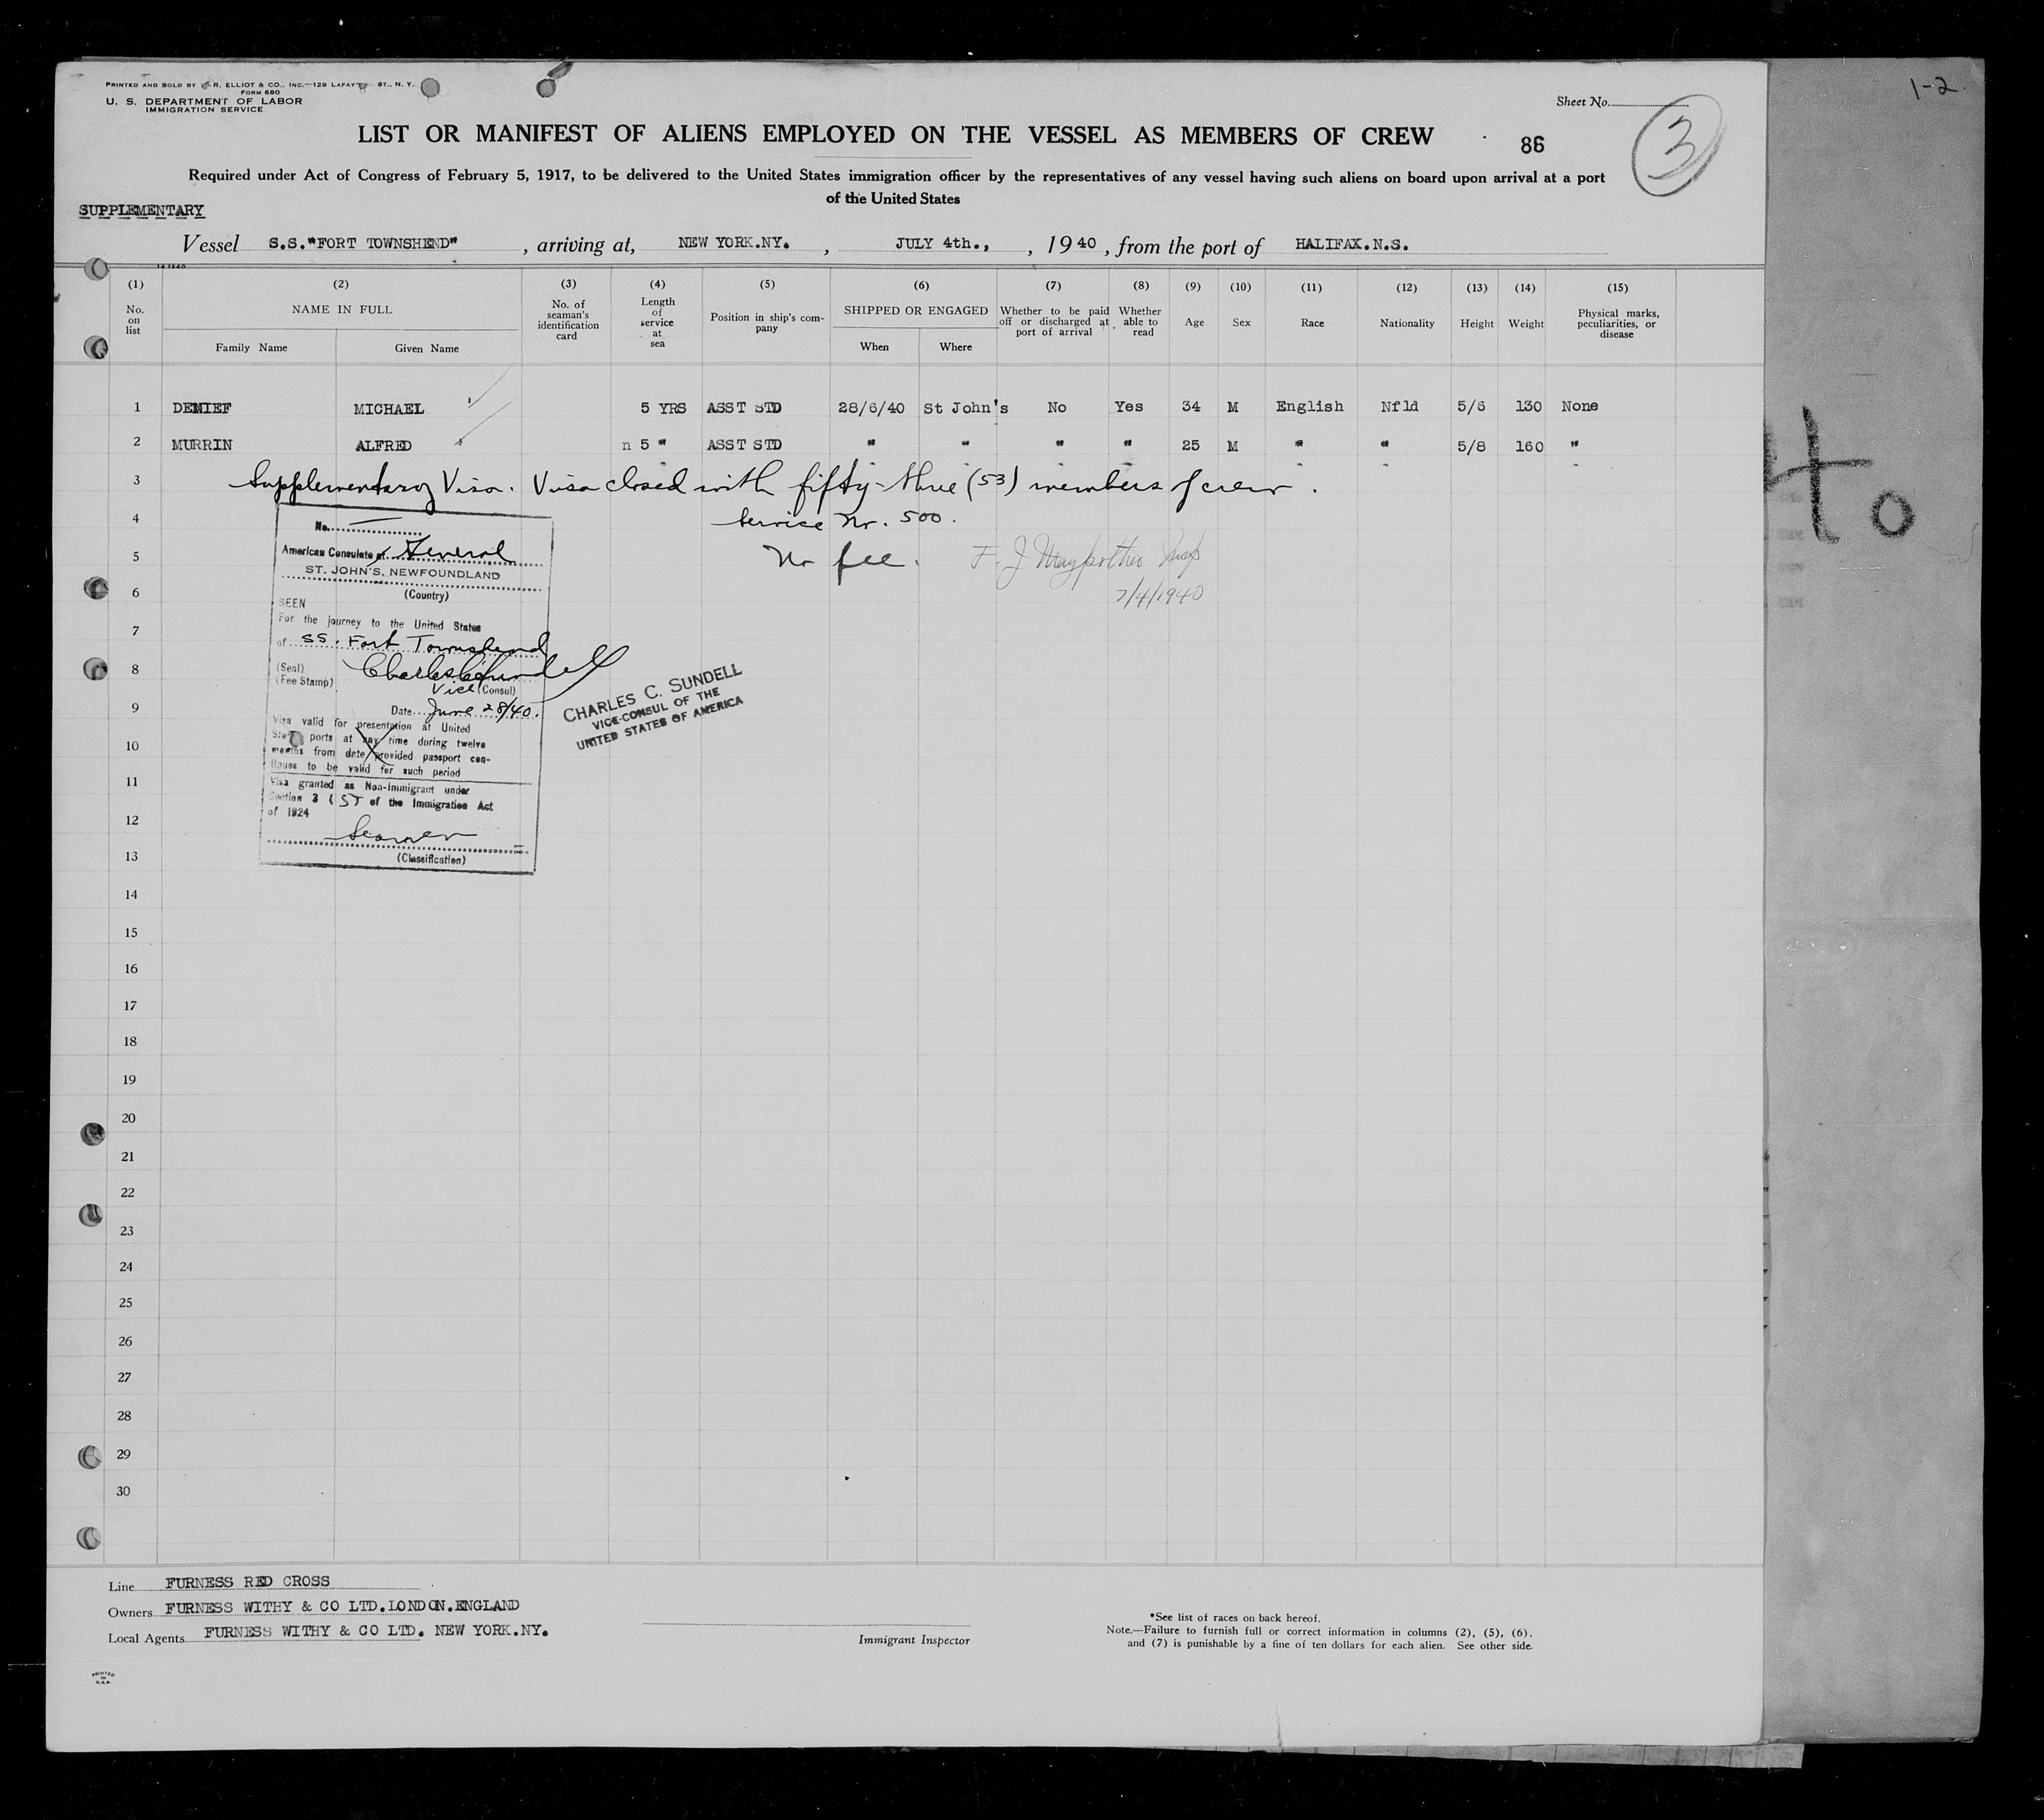 PRINTED AND SOLD BY R. ELLIOT & CO., INC.—129 LAFAYTE ST., N. Y.
FORM 680
U. S. DEPARTMENT OF LABOR
IMMIGRATION SERVICE
Sheet No.
1-2
LIST OR MANIFEST OF ALIENS EMPLOYED ON THE VESSEL AS MEMBERS OF CREW
86
3
Required under Act of Congress of February 5, 1917, to be delivered to the United States immigration officer by the representatives of any vessel having such aliens on board upon arrival at a port
of the United States
SUPPLEMENTARY
Vessel S.S."FORT TOWNSHEND", arriving at, NEW YORK.NY., JULY 4th.,, 1940, from the port of HALIFAX.N.S.
(1) (2) (3) (4) (5) (6) (7) (8) (9) (10) (11) (12) (13) (14) (15)
No. on list NAME IN FULL No. of seaman's identification card Length of service at sea Position in ship's company SHIPPED OR ENGAGED Whether to be paid off or discharged at port of arrival Whether able to read Age Sex Race Nationality Height Weight Physical marks, peculiarities, or disease
Family Name Given Name When Where
1 DEMIEF MICHAEL 5 YRS ASST STD 28/6/40 St John's No Yes 34 M English Nfld 5/6 130 None
2 MURRIN ALFRED n 5 " ASST STD " " " " 25 M " " 5/8 160 "
3 Supplementary Visa. Visa closed with fifty-three (53) members of crew.
4 Service Nr. 500.
5 No fee. F. J.
6 7/4/1940
7
8
9
10
11
12
13
14
15
16
17
18
19
20
21
22
23
24
25
26
27
28
29
30
No.
American Consulate at General
ST. JOHN'S, NEWFOUNDLAND
(Country)
SEEN
For the journey to the United States
of SS. Fort Townshend
(Seal) Charles C. Sundell
(Fee Stamp) Vice (Consul)
Date June 28/40.
Visa valid for presentation at United
States ports at any time during twelve
months from date provided passport con-
tinues to be valid for such period
Visa granted as Non-Immigrant under
Section 3 (5) of the Immigration Act
of 1924
Seamen
(Classification)
CHARLES C. SUNDELL
VICE-CONSUL OF THE
UNITED STATES OF AMERICA
to
Line FURNESS RED CROSS
Owners FURNESS WITHY & CO LTD.LONDON.ENGLAND
Local Agents FURNESS WITHY & CO LTD. NEW YORK.NY.
Immigrant Inspector
*See list of races on back hereof.
Note.—Failure to furnish full or correct information in columns (2), (5), (6),
and (7) is punishable by a fine of ten dollars for each alien. See other side.
PRINTED
IN
U.S.A.